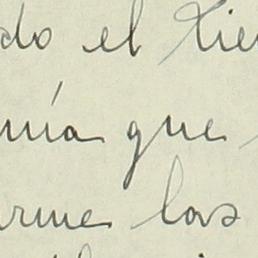 do el tie
nía que
rme los